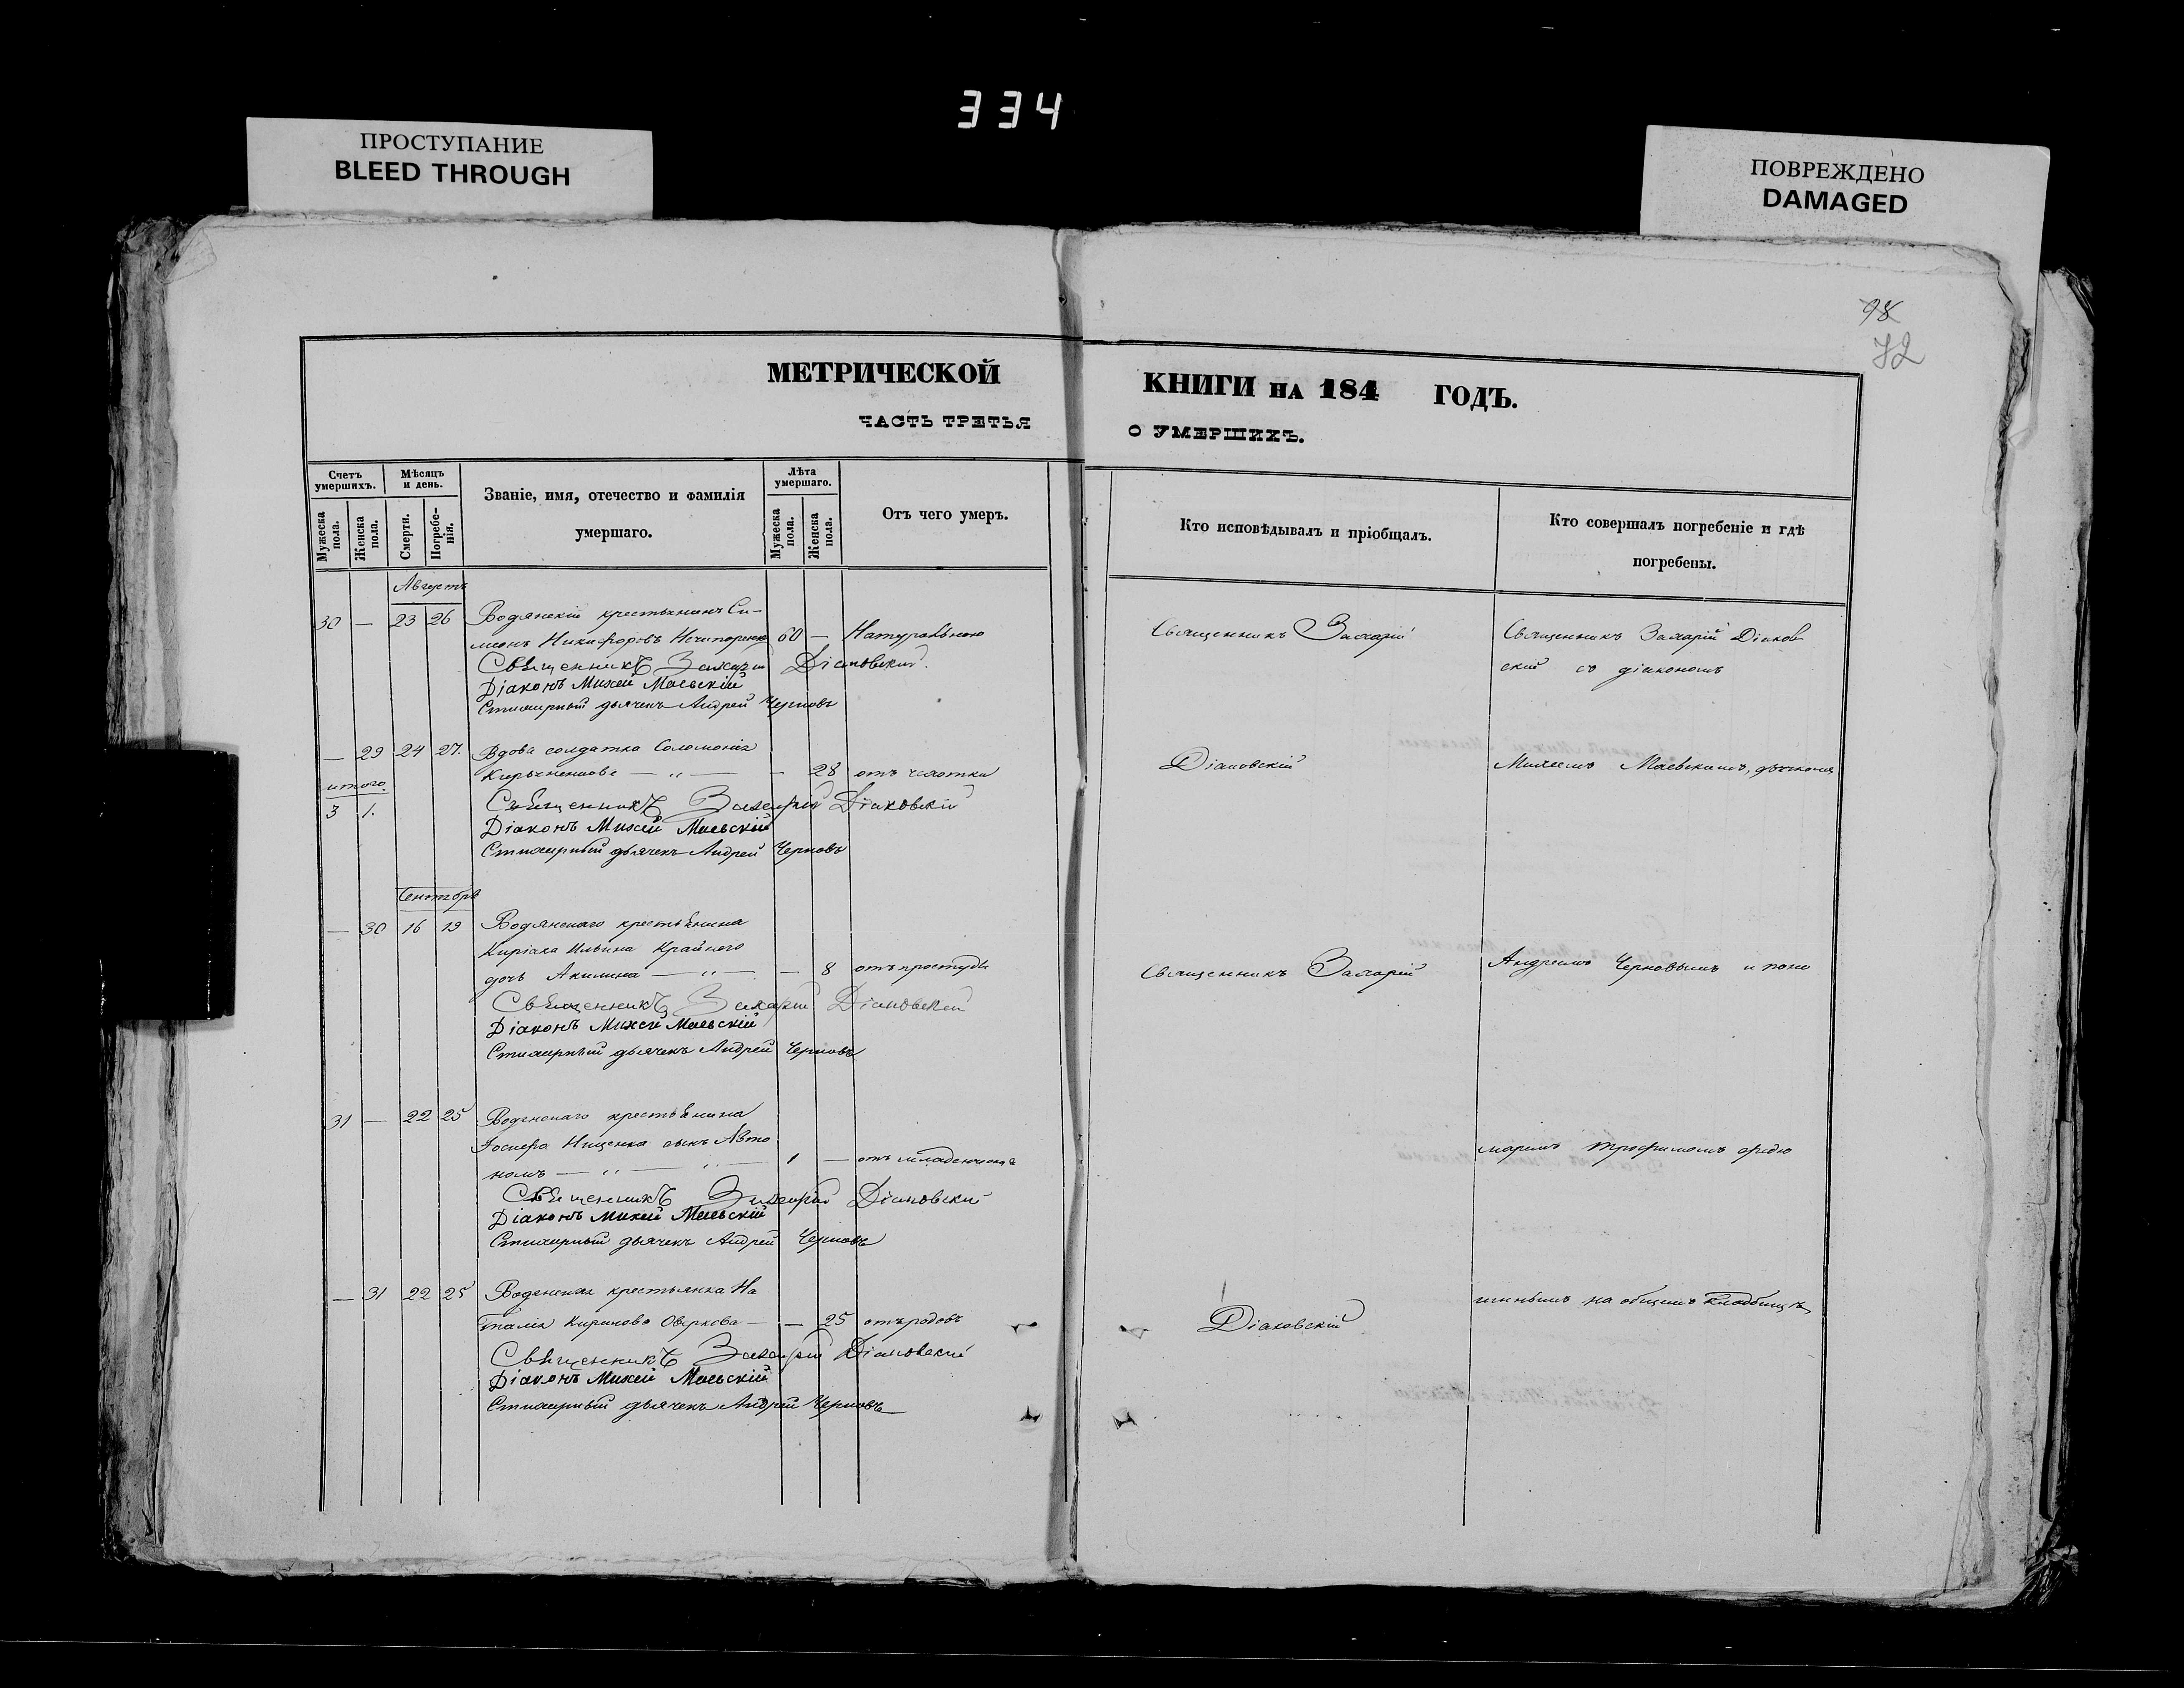 334
ПРОСТУПАНИЕ
BLEED THROUGH
ПОВРЕЖДЕНО
DAMAGED
98
72
МЕТРИЧЕСКОЙ КНИГИ НА 184 ГОДЪ.
ЧАСТЬ ТРЕТЬЯ О УМЕРШИХЪ.
Счетъ умершихъ.
Мужеска пола.
Женска пола.
Мѣсяцъ и день.
Смерти.
Погребенія.
Званіе, имя, отечество и фамилія умершаго.
Лѣта умершаго.
Мужеска пола.
Женска пола.
Отъ чего умеръ.
Кто исповѣдывалъ и пріобщалъ.
Кто совершалъ погребеніе и гдѣ погребены.
Августъ
30 — 23 26 Водянскій крестьянинъ Си-
меонъ Никифоровъ Нечипоренко 60 — Натуральною
Священникъ Захарій
Священникъ Захарій Діаков
ский со діакономъ
Священникъ Захарій Діаковский.
Діаконъ Михей Маевскій
Стихарный дьячекъ Андрей Черновъ
— 29 24 27. Вдова солдатка Соломонія
— „ — — 28 отъ чахотки
Діаковскій
Михеемъ Маевскимъ,
итого.
3 1.
Священникъ Захарій Діаковскій
Діаконъ Михей Маевскій
Стихарный дьячекъ Андрей Черновъ
Сентябрь
— 30 16 19 Водянскаго крестьянина
Киріака Ильина Крайнего
дочь Акилина — „ — — 8 отъ простуды
Священникъ Захарій
Андреемъ Черновымъ и поно
Священникъ Захарій Діаковский
Діаконъ Михей Маевскій
Стихарный дьячекъ Андрей Черновъ
31 — 22 25 Водянскаго крестьянина
Іосифа Нищенка сынъ Авто
номъ — „ — „ — 1 — отъ младенческой
маремъ Трофимомъ
Священникъ Захарий Діаковский
Діаконъ Михей Маевскій
Стихарный дьячекъ Андрей Черновъ
— 31 22 25 Водянская крестьянка На
талія Кирикова — — 25 отъ родовъ
Діаковскій
на общемъ кладбищѣ
Священникъ Захарій Діаковский
Діаконъ Михей Маевскій
Стихарный дьячекъ Андрей Черновъ